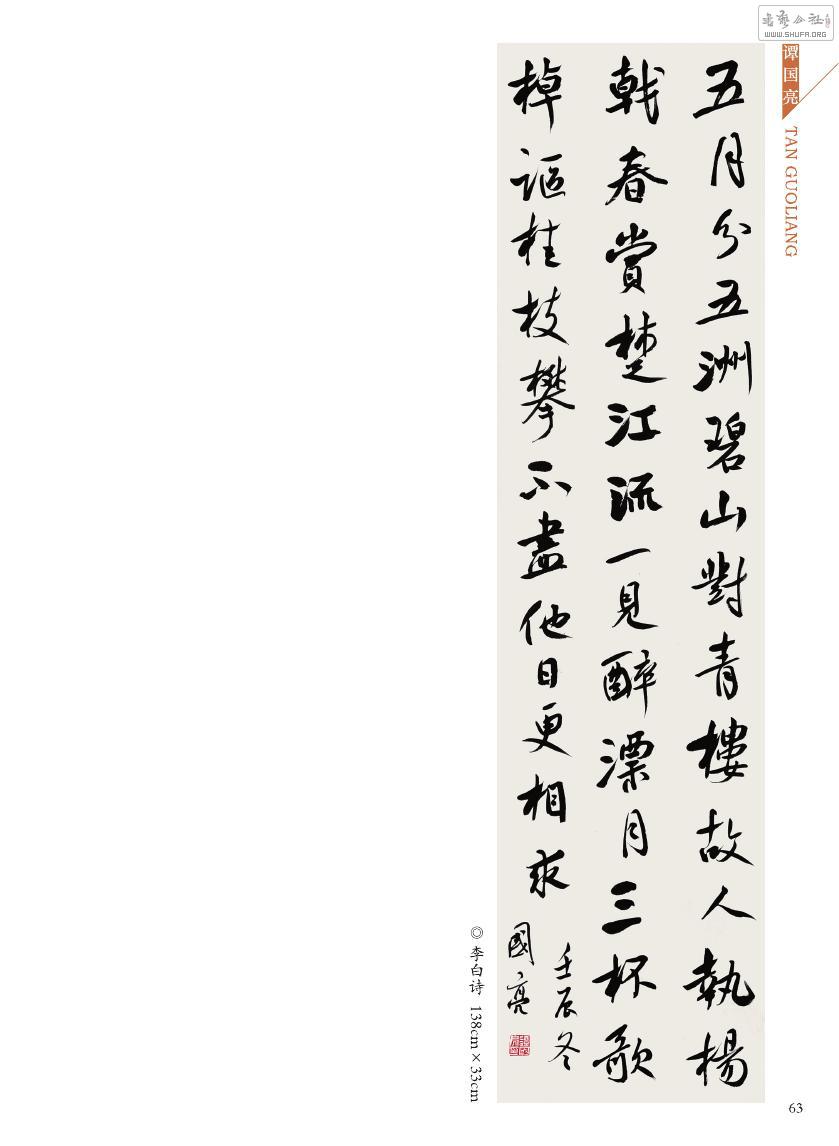 书艺公社
WWW.SHUFA.ORG
谭国亮
TAN GUOLIANG
五月分五洲碧山對青樓故人執楊
戟春賞楚江流一見醉漂月三杯歌
棹謳桂枝攀不盡他日更相求
壬辰冬
國亮
◎ 李白诗 138cm×33cm
63